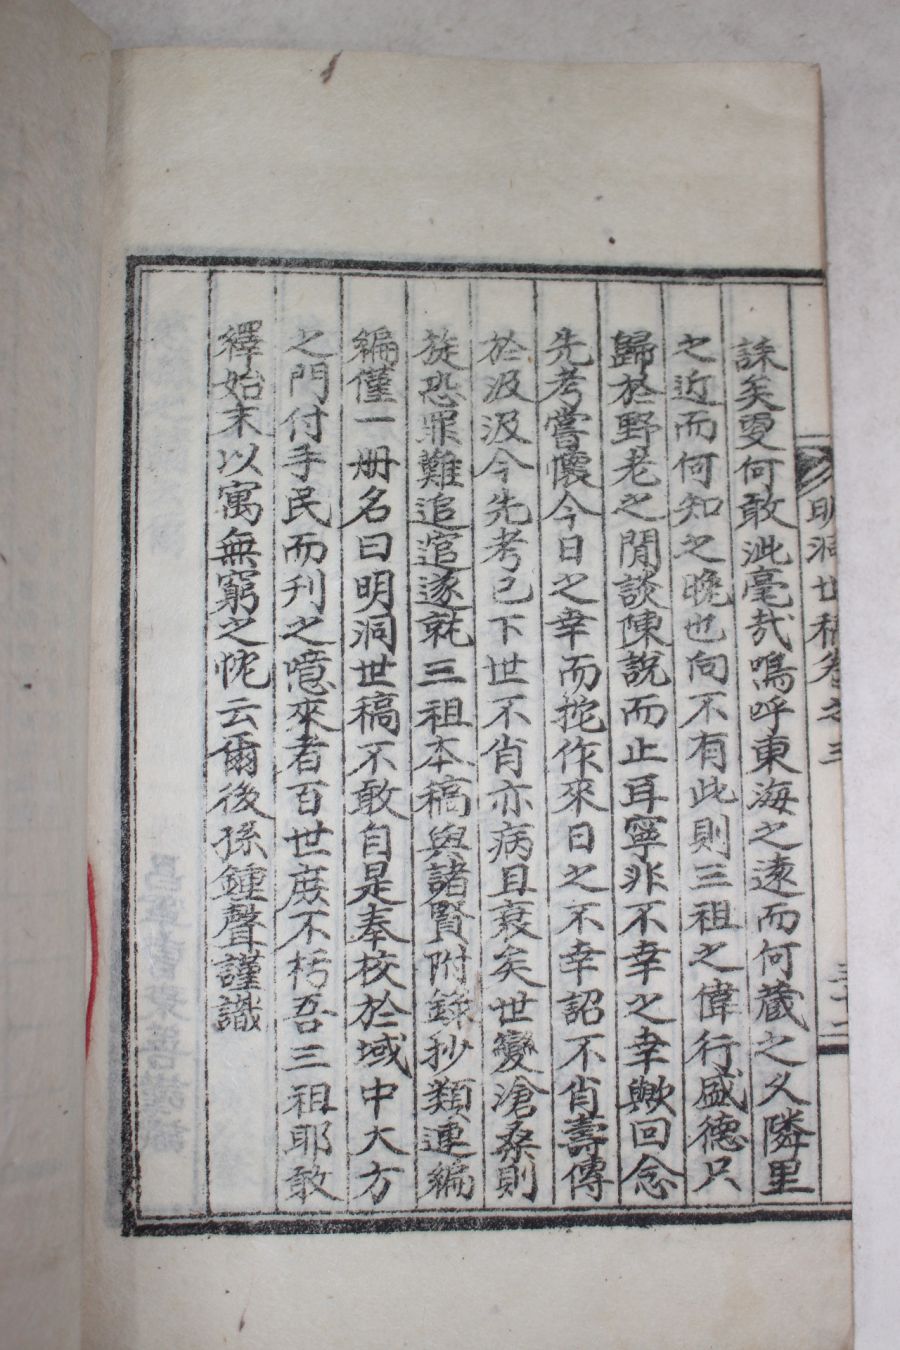 明洞世稿卷之三
三十二
誄矣更何敢泚毫哉嗚呼東海之遠而何蔵之久隣里
之近而何知之晩也向不有此則三祖之偉行盛德只
歸於野老之閒談陳說而止耳寧非不幸之幸歟回念
先考嘗懷今日之幸而挽作來日之不幸詔不肖壽傳
於汲汲今先考已下世不肖亦病且衰矣世變滄桑則
徒恐罪難追逭遂就三祖本稿與諸賢附錄抄類連編
編僅一册名曰明洞世稿不敢自是奉校於域中大方
之門付手民而刊之噫來者百世庶不朽吾三祖耶敢
繹始末以寓無窮之忱云爾後孫鍾聲謹識